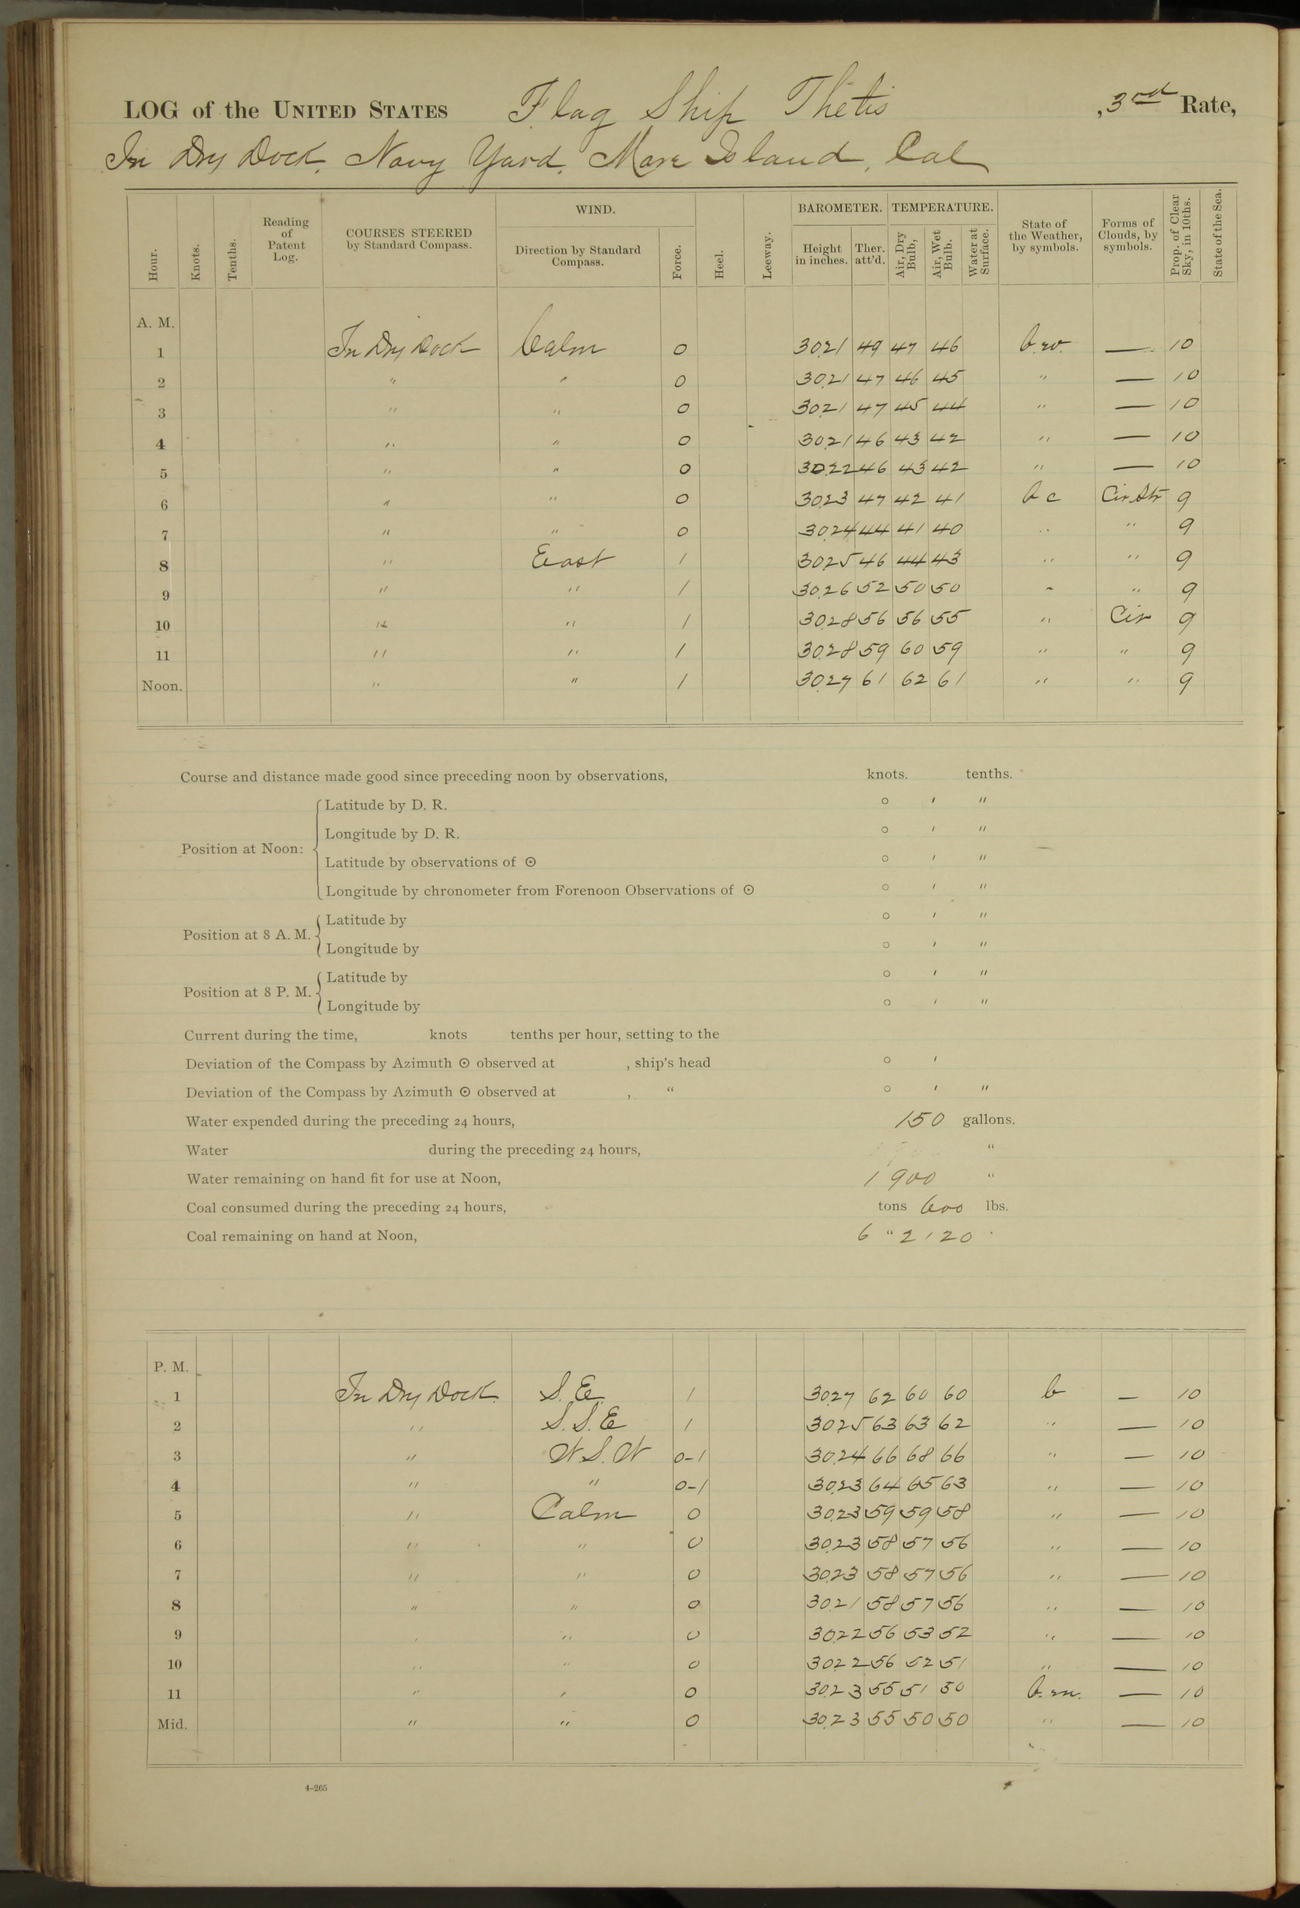 LOG of the UNITED STATES Flag Ship Thetis , 3rd Rate,
In Dry Dock, Navy Yard, Mare Island, Cal
Hour. Knots. Tenths. Reading of Patent Log. COURSES STEERED by Standard Compass. WIND. Direction by Standard Compass. Force. Heel. Leeway. BAROMETER. Height in inches. Ther. att'd. TEMPERATURE. Air, Dry Bulb, Air, Wet Bulb. Water at Surface. State of the Weather, by symbols. Forms of Clouds, by symbols. Prop. of Clear Sky, in 10ths. State of the Sea.
A. M.
1 In Dry Dock Calm 0 30.21 49 47 46 — 10
2 " " 0 30.21 47 46 45 " — 10
3 " " 0 30.21 47 45 44 " — 10
4 " " 0 30.21 46 43 42 " — 10
5 " " 0 30.22 46 43 42 " — 10
6 " " 0 30.23 47 42 41 b c Cir.Str 9
7 " " 0 30.24 44 41 40 " " 9
8 " East 1 30.25 46 44 43 " " 9
9 " " 1 30.26 52 50 50 " " 9
10 " " 1 30.28 56 56 55 " Cir 9
11 " " 1 30.28 59 60 59 " " 9
Noon. " " 1 30.27 61 62 61 " " 9
Course and distance made good since preceding noon by observations, knots. tenths.
Position at Noon: Latitude by D. R. ° ′ ″
Longitude by D. R. ° ′ ″
Latitude by observations of ☉ ° ′ ″
Longitude by chronometer from Forenoon Observations of ☉ ° ′ ″
Position at 8 A. M. Latitude by ° ′ ″
Longitude by ° ′ ″
Position at 8 P. M. Latitude by ° ′ ″
Longitude by ° ′ ″
Current during the time, knots tenths per hour, setting to the
Deviation of the Compass by Azimuth ☉ observed at , ship's head ° ′
Deviation of the Compass by Azimuth ☉ observed at , " ° ′ ″
Water expended during the preceding 24 hours, 150 gallons.
Water during the preceding 24 hours, "
Water remaining on hand fit for use at Noon, 1900 "
Coal consumed during the preceding 24 hours, tons 600 lbs.
Coal remaining on hand at Noon, 6 " 2120 "
P. M.
1 In Dry Dock S.E. 1 30.27 62 60 60 b — 10
2 " S.S.E 1 30.25 63 63 62 " — 10
3 " W.S.W 0-1 30.24 66 68 66 " — 10
4 " " 0-1 30.23 64 65 63 " — 10
5 " Calm 0 30.23 59 59 58 " — 10
6 " " 0 30.23 58 57 56 " — 10
7 " " 0 30.23 58 57 56 " — 10
8 " " 0 30.21 58 57 56 " — 10
9 " " 0 30.22 56 53 52 " — 10
10 " " 0 30.22 56 52 51 " — 10
11 " " 0 30.23 55 51 50 b.m. — 10
Mid. " " 0 30.23 55 50 50 " — 10
4-265